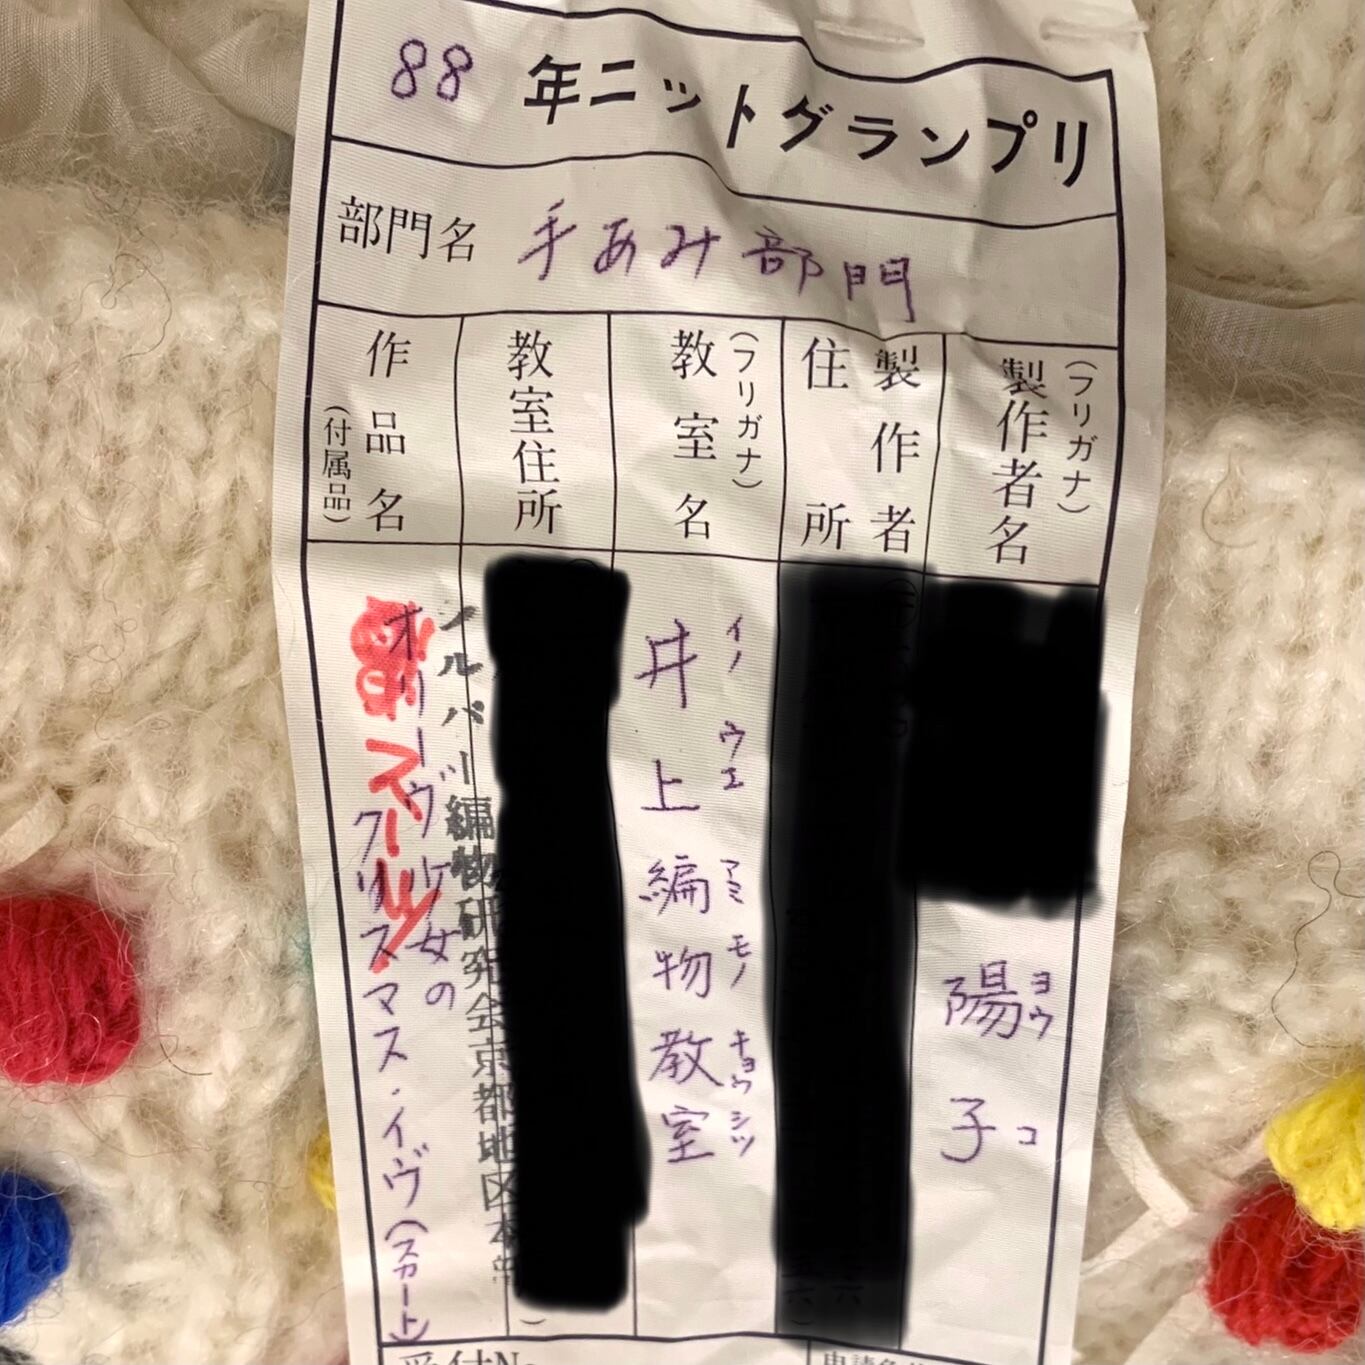 88年ニットグランプリ
部門名 手あみ部門
(フリガナ)
製作者名
ヨウコ
陽子
製作者
住所
(フリガナ)
教室名
イノウエアミモノキョウシツ
井上編物教室
教室住所
ノルバー編物研究会京都地区本部
作品名
(付属品)
オリーヴ少女の
クリスマス・イヴ(スカート)
受付No